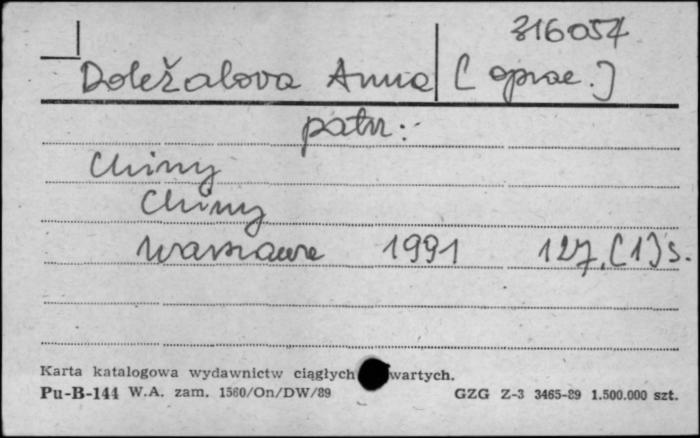 316054
Doležalova Anna [oprac.]
patrz:
Chiny
Chiny
Warszawa 1991 127,[1]s.
Karta katalogowa wydawnictw ciągłych wartych.
Pu-B-144 W.A. zam. 1560/On/DW/89 GZG Z-3 3465-89 1.500.000 szt.